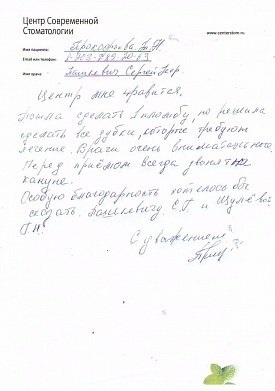 Центр Современной
Стоматологии
www.centerstom.ru
Имя пациента: Прокофьева Т.Н.
Email или телефон: 8-903-789-20-63
Имя врача: Пашкевич Сергей
Центр мне нравится.
Пошла сделать 1 пломбу, но решила
сделать все зубки, которые требуют
лечение. Врачи очень внимательные.
Перед приёмом всегда звонят на
кануне.
Особую благодарность хотелось бы
сказать Пашкевичу С.Г. и
Г.Н.
С уважением